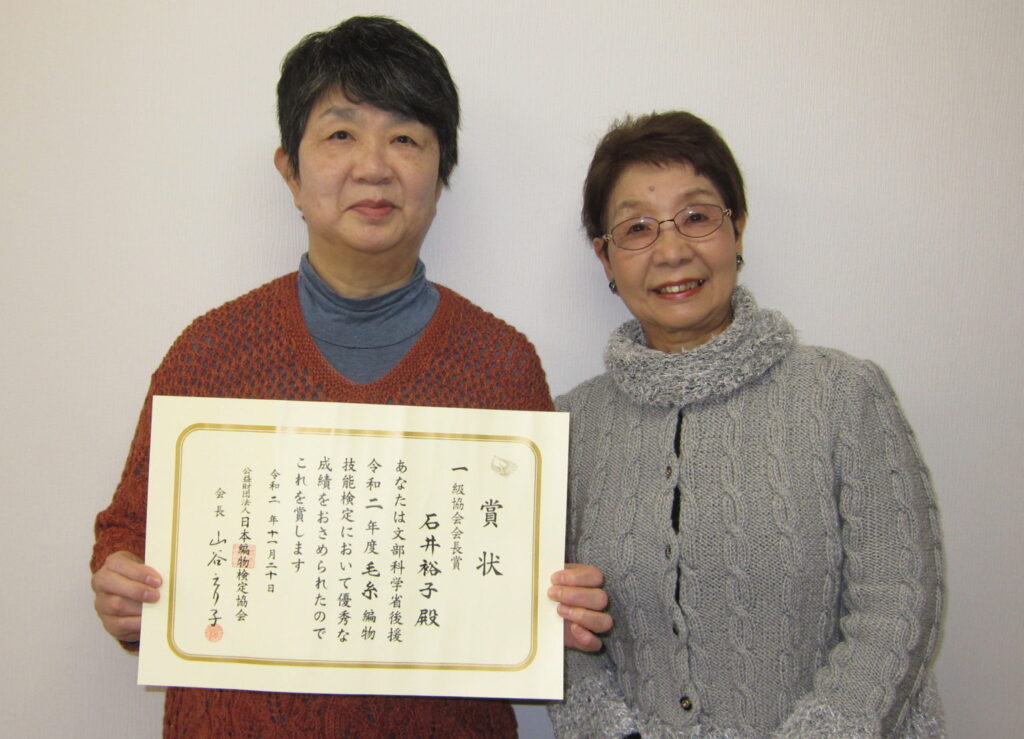 賞状
一級協会会長賞
石井裕子殿
あなたは文部科学省後援
令和二年度毛糸編物
技能検定において優秀な
成績をおさめられたので
これを賞します
令和二年十一月二十日
公益財団法人日本編物検定協会
会長 山谷えり子